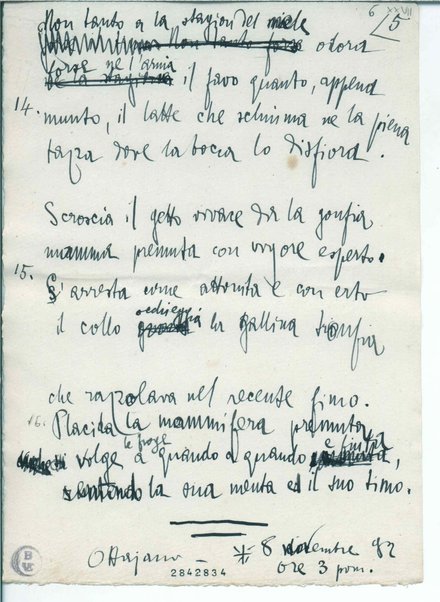 6 XXVII
5
Non tanto a la stagion del miele
Non tanto forse odora
forse ne l'arnia
il favo quanto, appena
14.
munto, il latte che schiuma ne la piena
tazza dove la bocca lo disfiora.
Scroscia il getto vivace da la gonfia
mamma premuta con vigore esperto.
15.
S'arresta come attonita e con erto
il collo la gallina tronfia
che razzolava nel recente fimo.
16.
Placida la mammifera premuta
le froge
volge a quando a quando e fiuta,
sentendo la sua menta ed il suo timo.
Ottajano — 8 novembre 92
ore 3 pom.
2842834